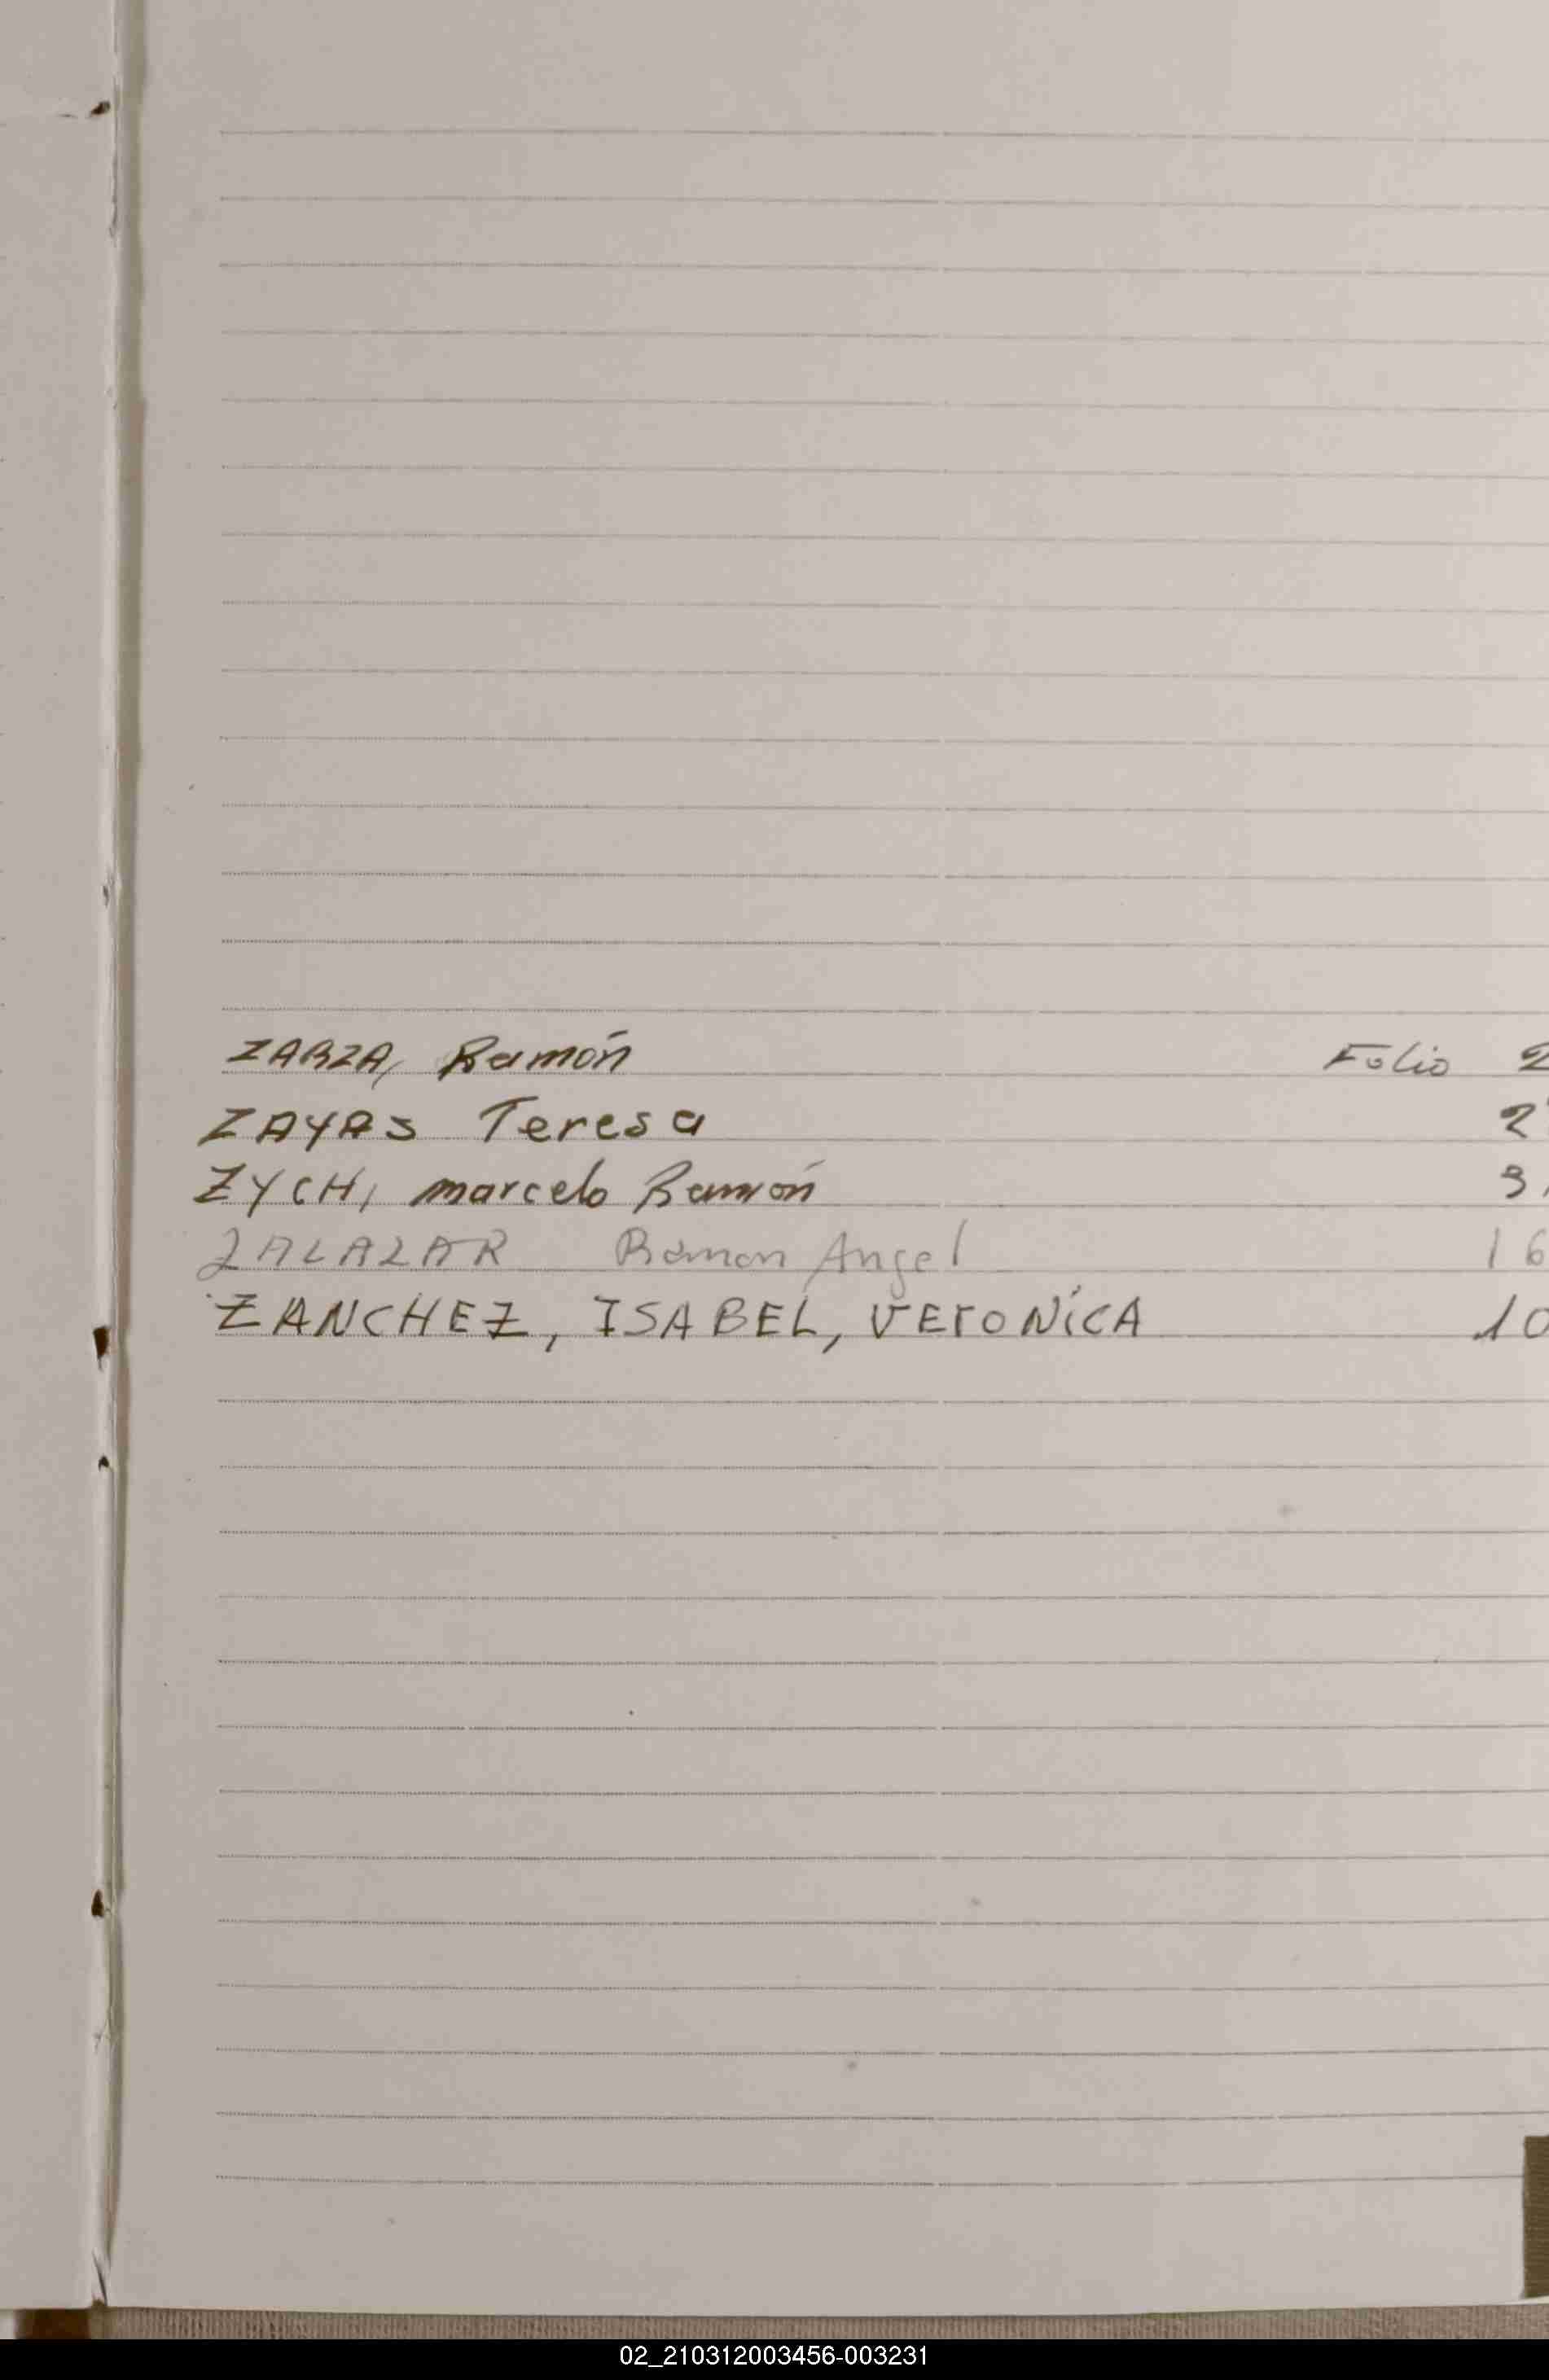 ZARZA, Ramón Folio 2
ZAYAS Teresa 2
ZYCH, marcelo Ramón 3
ZALAZAR Ramon Angel 16
ZANCHEZ, ISABEL, VErONiCA 10
02_210312003456-003231